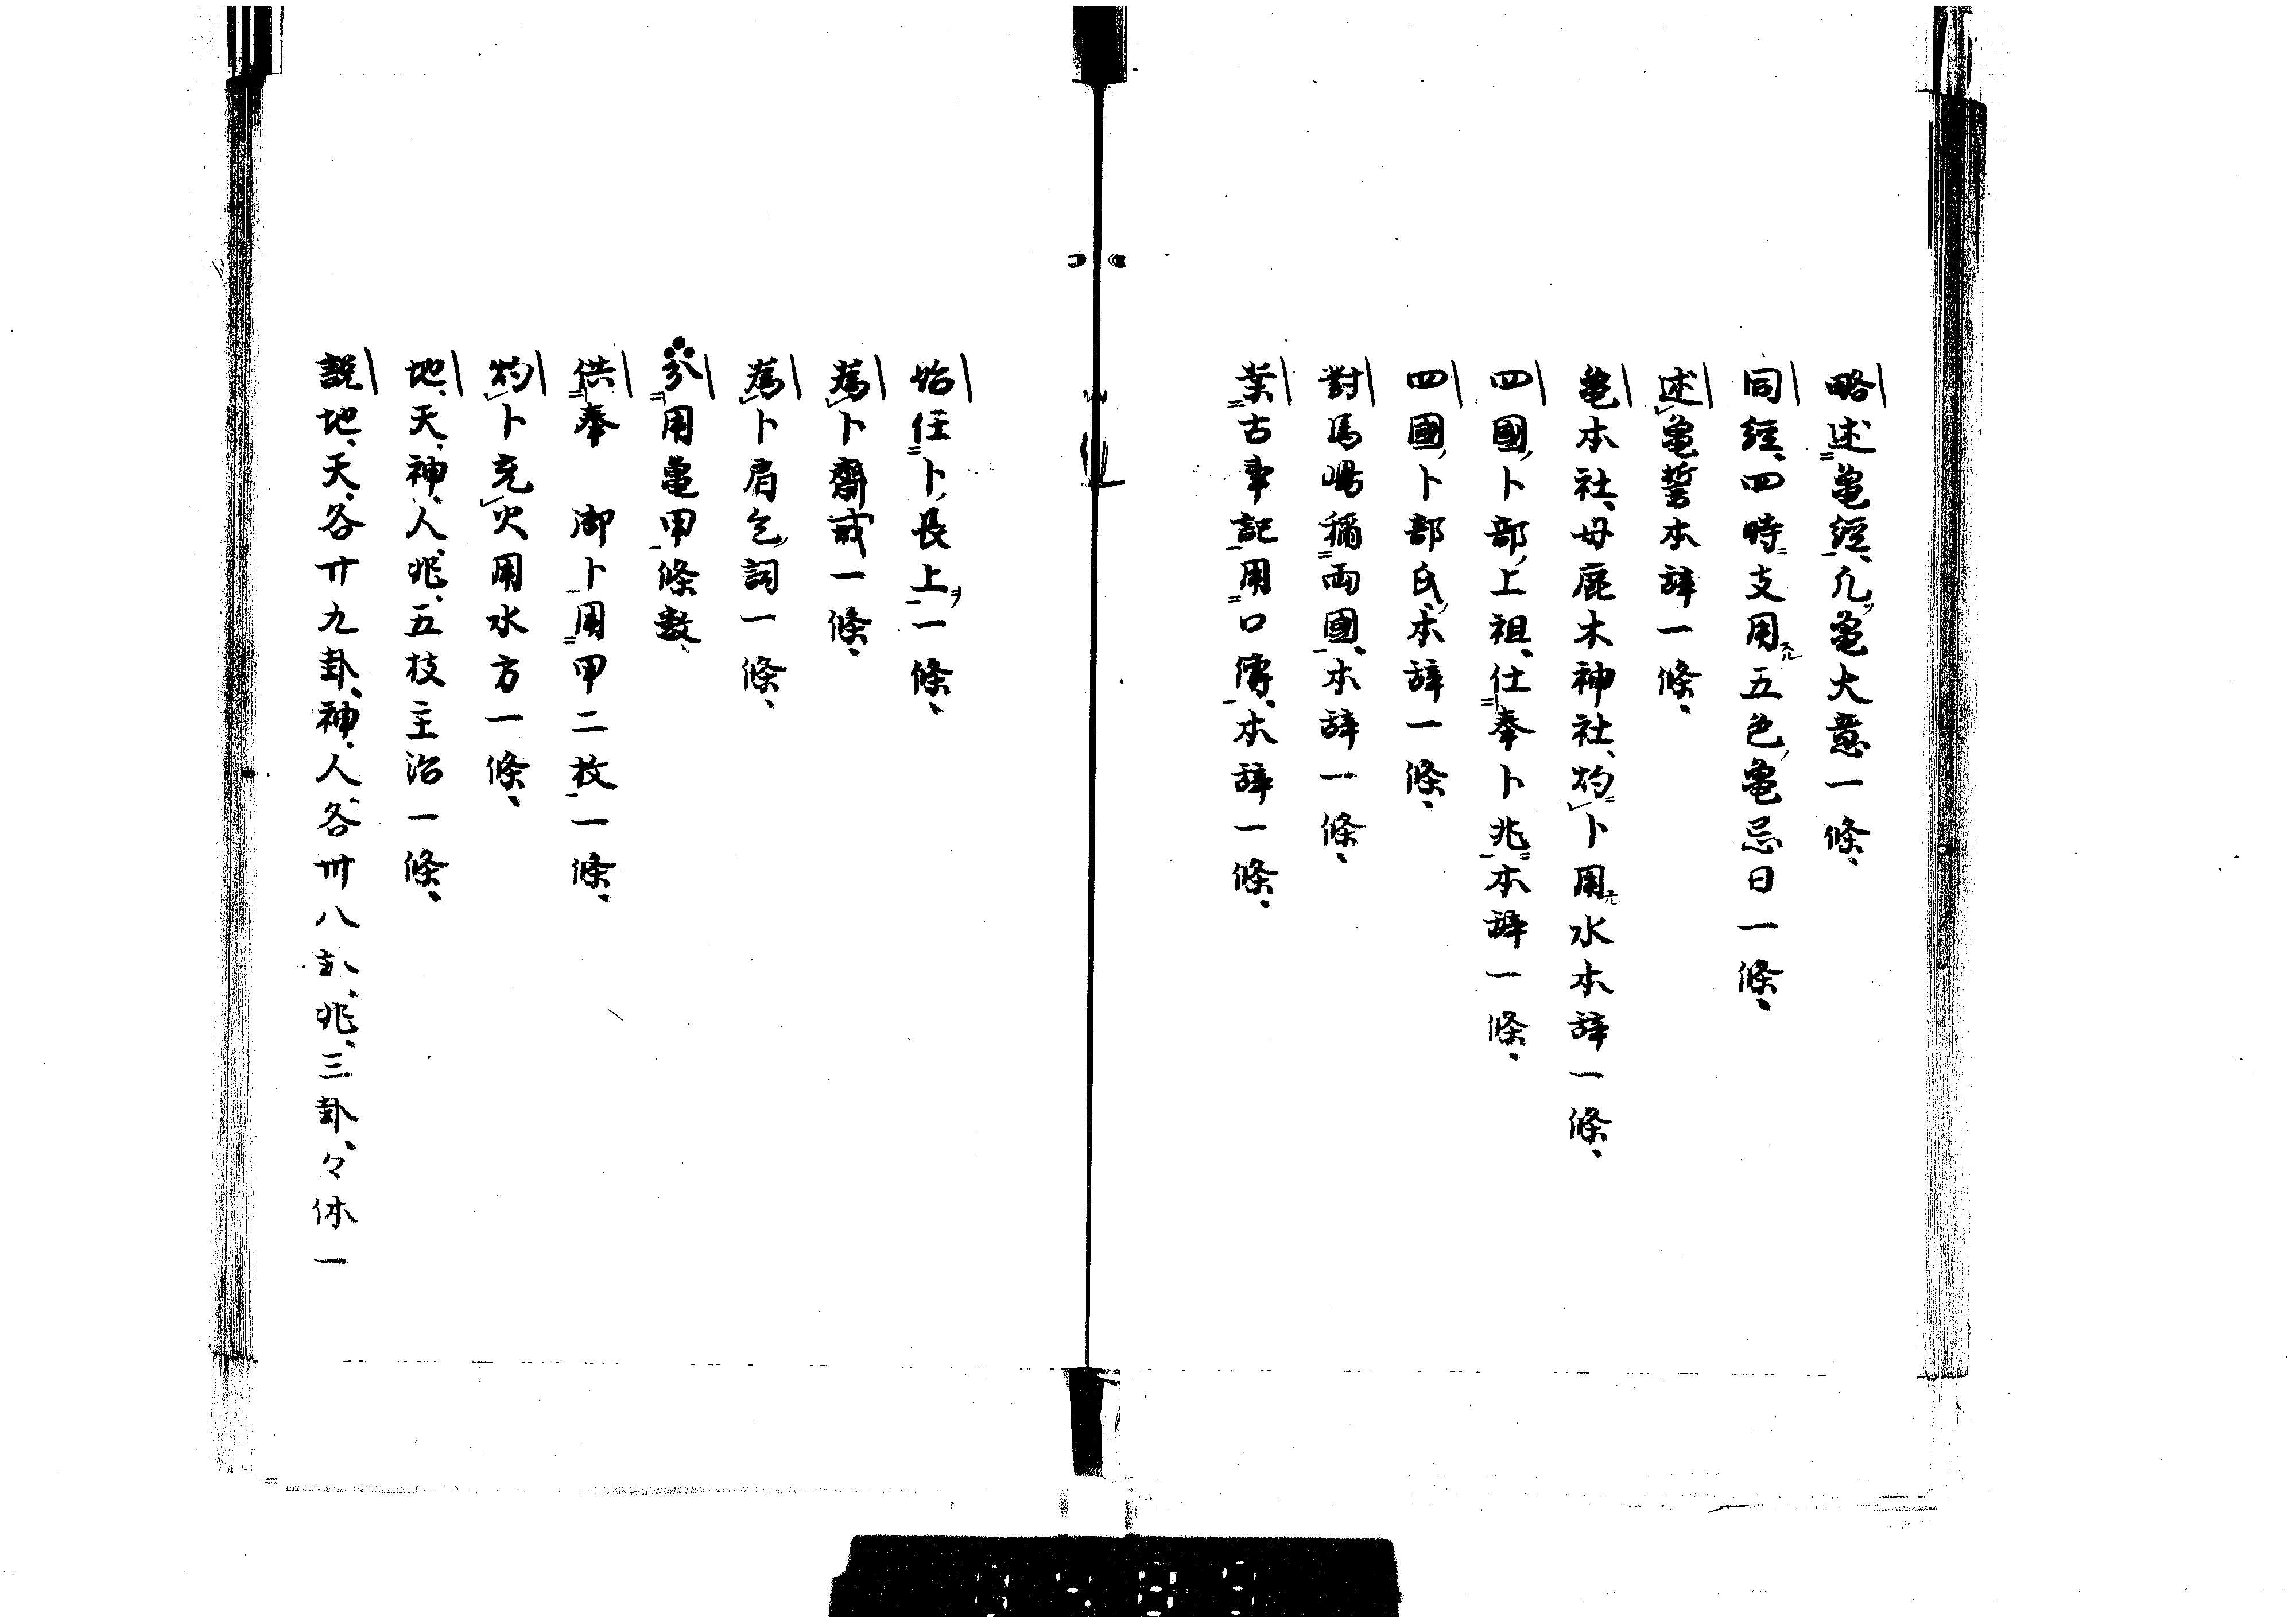 略述亀經、凡亀大意一條、
同經、四時支用五色亀忌日一條、
述亀誓本辞一條、
亀本社、母鹿木神社、灼卜用水本辞一條、
四國卜部上祖、仕奉卜兆本辞一條、
四國卜部氏本辞一條、
對馬嶋稱両國、本辞一條、
葉古事記用口傳、本辞一條、
始任卜長上ヲ一條、
為卜齋戒一條、
為卜肩乞詞一條、
分用亀甲條數、
供奉 御卜用甲二枚一條、
灼卜充火用水方一條、
地、天、神、人、兆、五技主治一條、
説地、天、各廿九卦、神、人、各卌八卦、兆、三卦、々体一